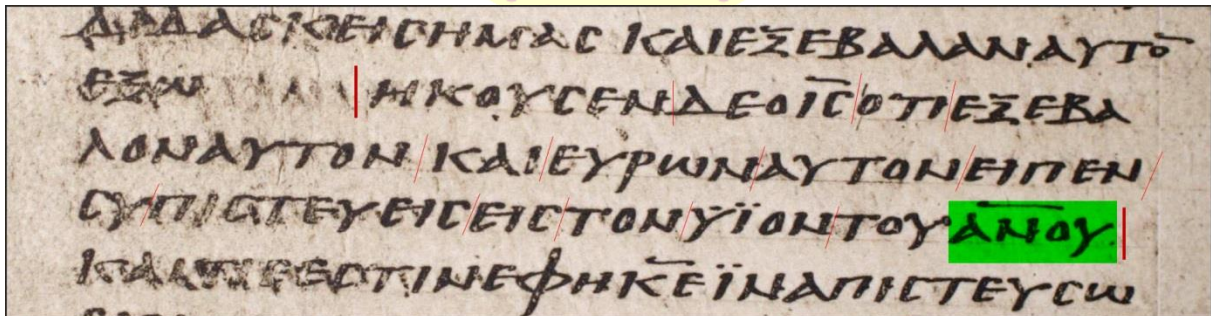 ΔΙΔΑCΚΕΙCΗΜΑC ΚΑΙΕΞΕΒΑΛΑΝΑΥΤΟ̅
ΕΞΩ ΗΚΟΥCΕΝΔΕΟΙ̅C̅ΟΤΙΕΞΕΒΑ
ΛΟΝΑΥΤΟΝ ΚΑΙΕΥΡΩΝΑΥΤΟΝΕΙΠΕΝ
CΥΠΙCΤΕΥΕΙCΕΙCΤΟΝΫΪΟΝΤΟΥΑ̅Ν̅Ο̅Υ̅
ΚΑΙΤΙCΕCΤΙΝΕΦΗΚ̅Ε̅ΪΝΑΠΙCΤΕΥCΩ